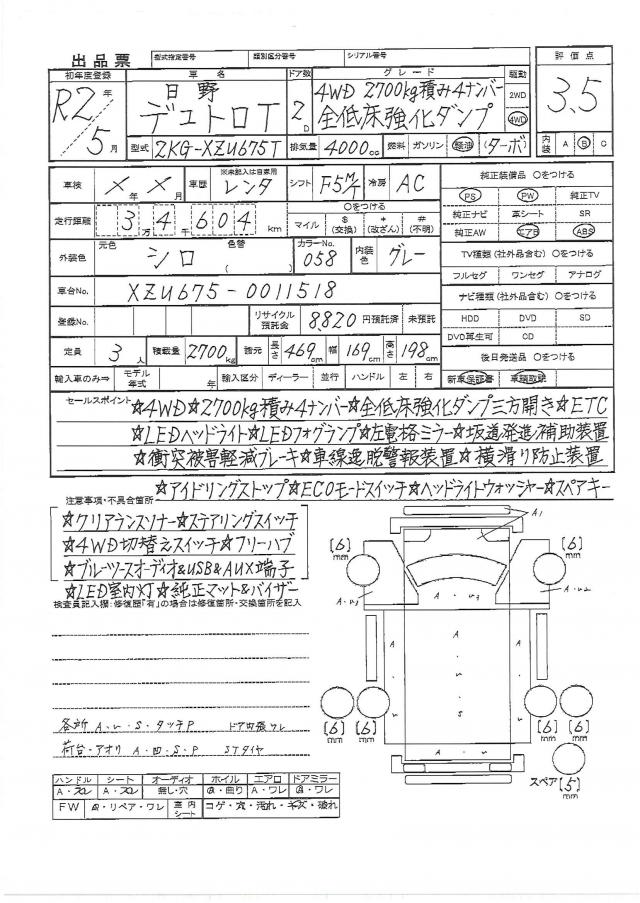 出品票 型式指定番号 類別区分番号 シリアル番号
初年度登録 車名 ドア数 グレード 駆動 評価点
R2年 5月
日野
デュトロT
2D
4WD 2700kg積み4ナンバー
全低床強化ダンプ
2WD
4WD
3.5
型式 2KG-XZU675T 排気量 4000cc 燃料 ガソリン・軽油 (ターボ) 内装 A B C
車検 X年X月 車歴 ※未記入は自家用 レンタ シフト F5M/T 冷房 AC
純正装備品 〇をつける
PS PW 純正TV
純正ナビ 革シート SR
純正AW エアB ABS
走行距離 3万4千604km
〇をつける
マイル $(交換) *(改ざん) #(不明)
外装色 元色 シロ 色替 ( ) カラーNo. 058 内装色 グレー
TV種類(社外品含む) 〇をつける
フルセグ ワンセグ アナログ
車台No. XZU675-0011518
ナビ種類(社外品含む) 〇をつける
登録No. リサイクル預託金 8,820 円預託済 未預託
HDD DVD SD
DVD再生可 CD
定員 3人 積載量 2700kg 諸元 長さ 469cm 幅 169cm 高さ 198cm
後日発送品 〇をつける
輸入車のみ⇒ モデル年式 年 輸入区分 ディーラー・並行 ハンドル 左・右
新車保証書 車輌取説
セールスポイント ☆4WD☆2700kg積み4ナンバー☆全低床強化ダンプ三方開き☆ETC
☆LEDヘッドライト☆LEDフォグランプ☆左電格ミラー☆坂道発進補助装置
☆衝突被害軽減ブレーキ☆車線逸脱警報装置☆横滑り防止装置
☆アイドリングストップ☆ECOモードスイッチ☆ヘッドライトウォッシャー☆スペアキー
注意事項・不具合箇所
☆クリアランスソナー☆ステアリングスイッチ
☆4WD切替えスイッチ☆フリーハブ
☆ブルーツースオーディオ&USB&AUX端子
☆LED室内灯☆純正マット&バイザー
検査員記入欄:修復歴「有」の場合は修復箇所・交換箇所を記入
A1
[6]mm [6]mm
A
A
A
S
各所 A・S・タッチP ドア内張ワレ
荷台・アオリ A・凹・S・P STタイヤ
[6]mm [6]mm [6]mm [6]mm
スペア [5]mm
ハンドル シート オーディオ ホイル エアロ ドアミラー
A・スレ A・スレ 無し・穴 曲り A・ワレ ワレ
FW リペア・ワレ 室内シート コゲ・穴・汚れ・キズ・破れ